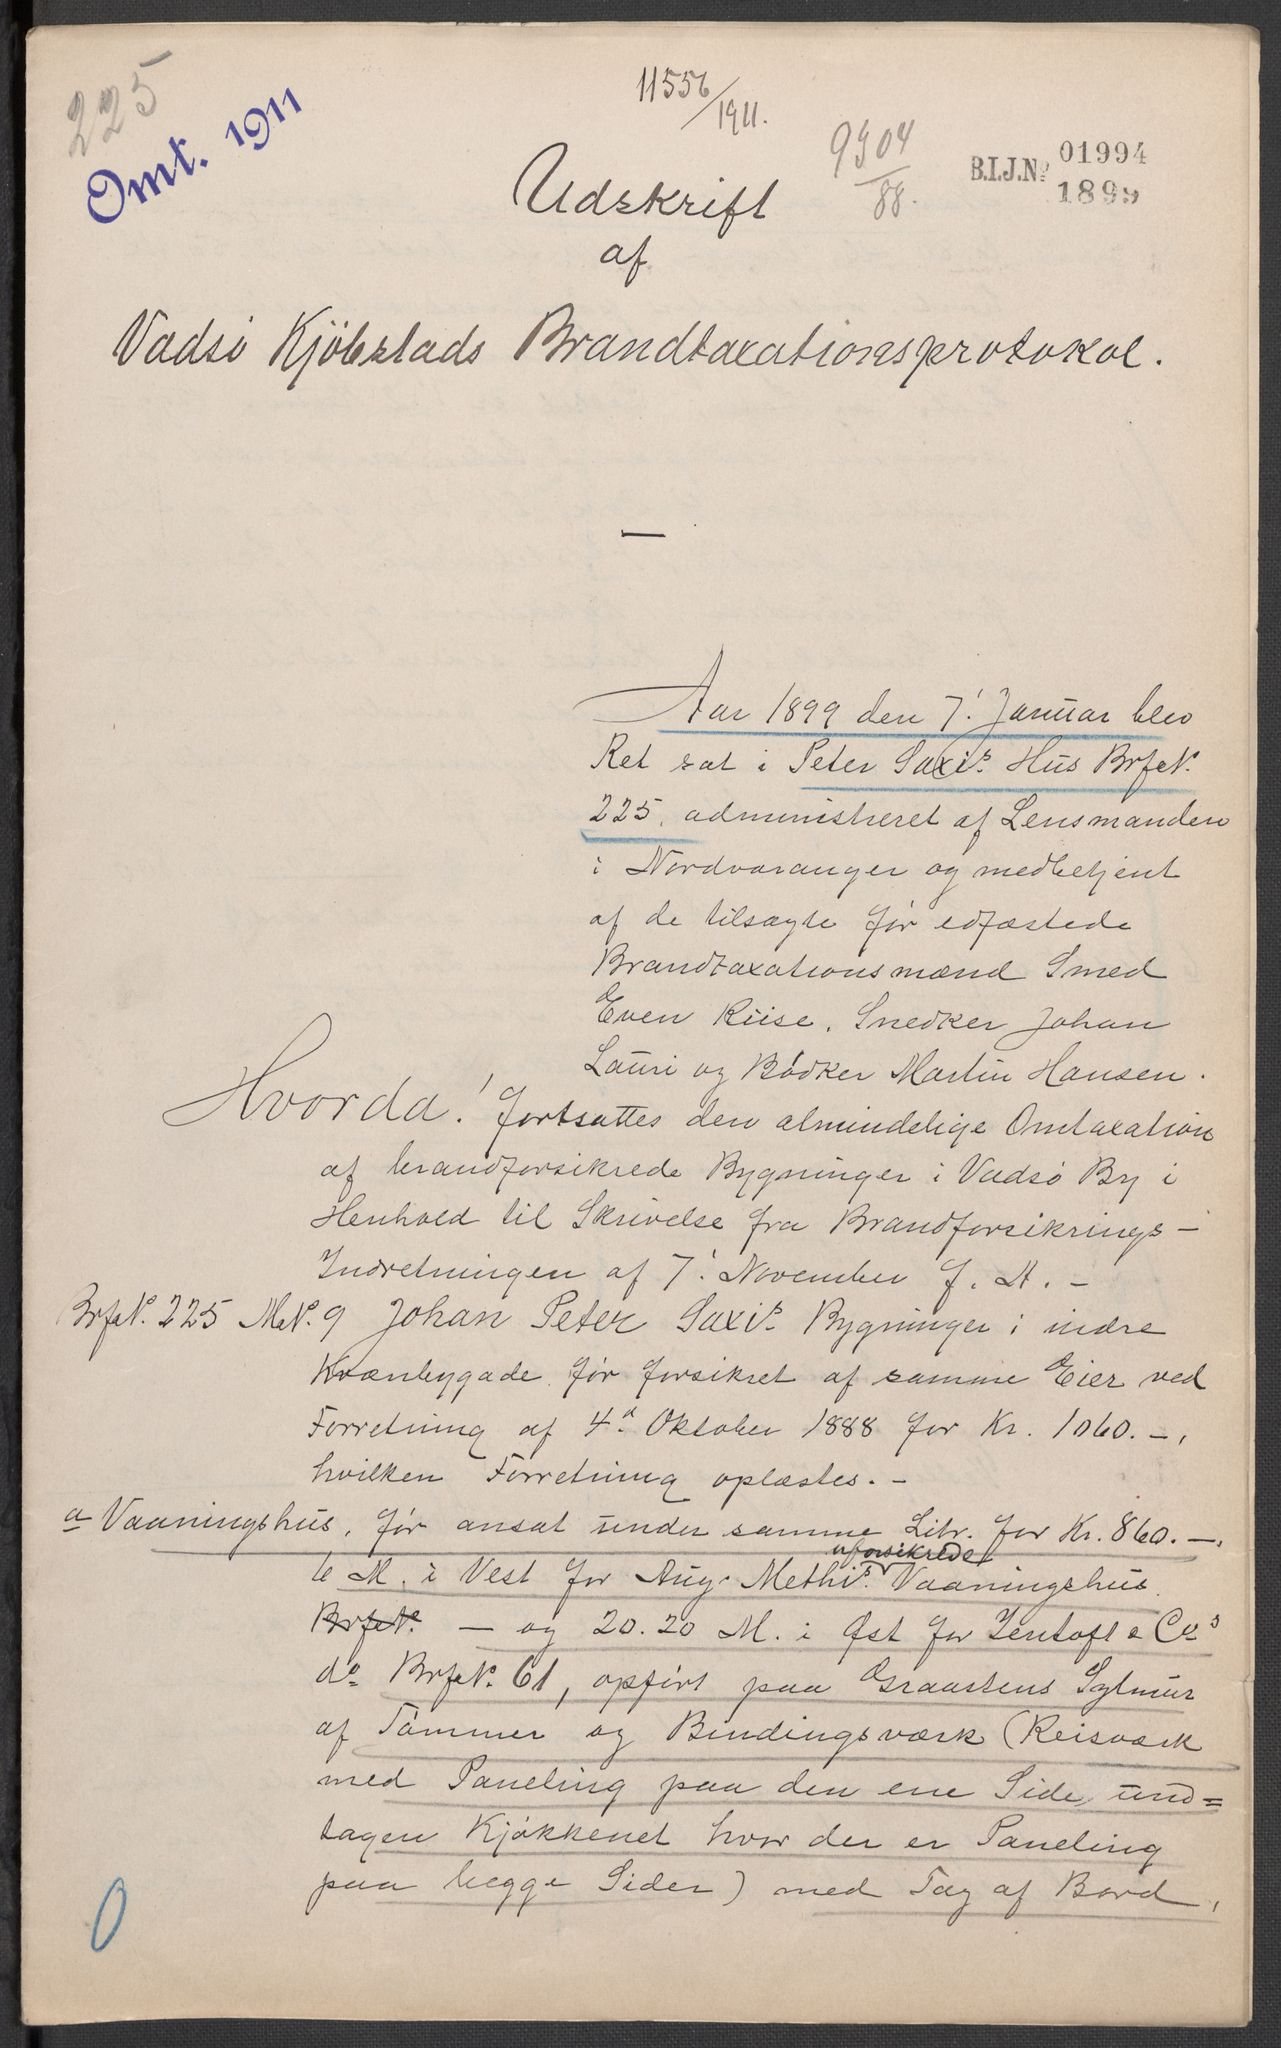 225
Omt. 1911
11556/1911.
9904/88.
B.I.J.No 01994
1899
Udskrift
af
Vadsö Kjöbstads Brandtaxationsprotokol.
—
Aar 1899 den 7' Januar blev
Ret sat i Peter Saxi's Hus BrfN.
225. administreret af Lensmanden
i Nordvaranger og medbetjent
af de tilsagte før edfæstede
Brandtaxationsmænd Smed
Even Riise, Snedker Johan
Lauri og Bödker Martin Hansen.
Hvorda! fortsattes den almindelige Omtaxation
af brandforsikrede Bygninger i Vadsö By i
Henhold til Skrivelse fra Brandforsikrings-
Indretningen af 7' November f. A. -
BrfN. 225 MN. 9 Johan Peter Saxi's Bygninger i indre
Kvænbygade før forsikret af samme Eier ved
Forretning af 4d. Oktober 1888 for Kr. 1060. -,
hvilken Forretning oplæstes. -
a Vaaningshus, før ansat under samme Litr. for Kr. 860. -,
6 M. i Vest for Aug. Methi's uforsikrede Vaaningshus
BrfN. — og 20.20 M. i Øst for Zentoft & Co's
do BrfN. 61, opfört paa Graastens Sylmur
af Tömmer og Bindingsværk (Reisværk
med Paneling paa den ene Side, und=
tagen Kjökkenet hvor der er Paneling
paa begge Sider) med Tag af Bord,
0